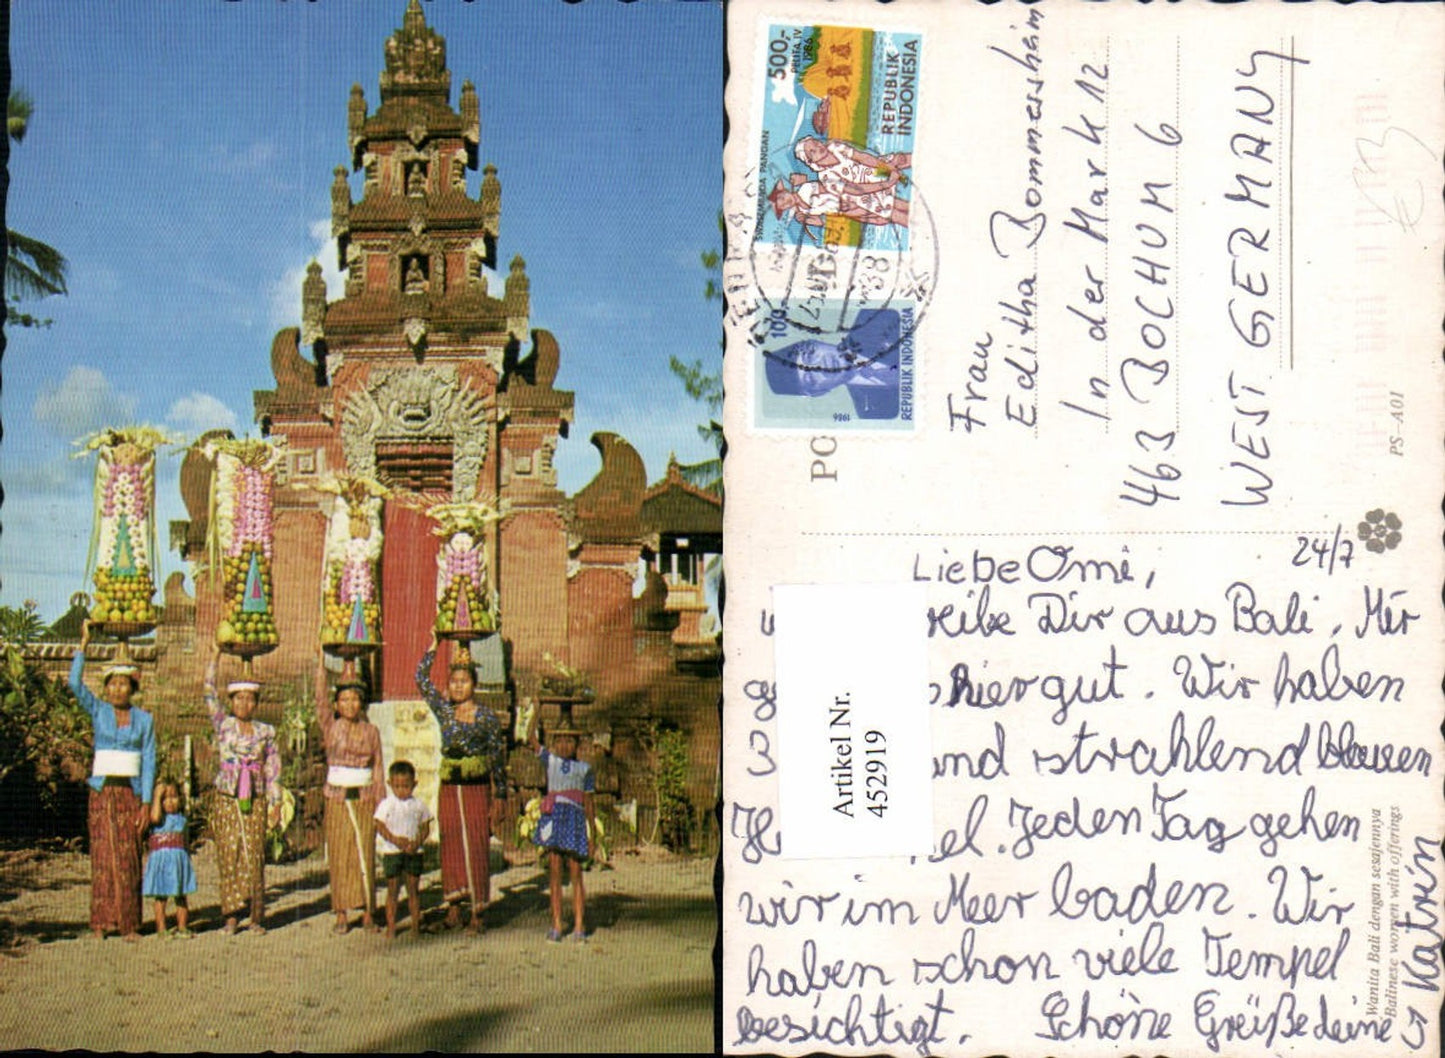 500,-
PELITA IV
1986
REPUBLIK
INDONESIA
SWASEMBADA PANGAN
100,-
REPUBLIK INDONESIA
1986
38
PO
Frau
Editha Bommersheim
In der Mark 12
463 BOCHUM 6
WEST GERMANY
PS-A01
24/7
Liebe Omi,
Dir aus Bali. Mir
hier gut. Wir haben
und strahlend blauen
Jeden Tag gehen
wir im Meer baden. Wir
haben schon viele Tempel
besichtigt. Schöne Grüße deine
Katrin
Artikel Nr.
452919
Wanita Bali dengan sesajennya
Balinese women with offerings